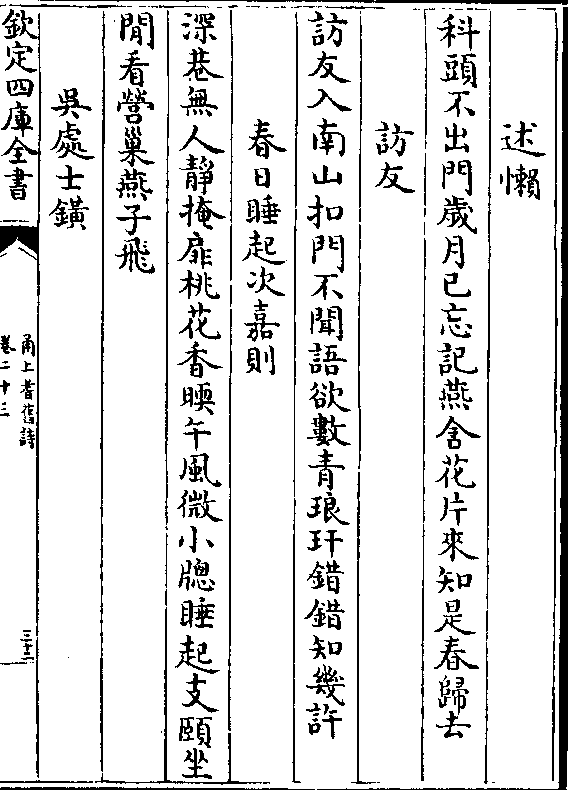 述懶
科頭不出門歲月已忘記燕含花片來知是春歸去
訪友
訪友入南山扣門不聞語欲數青琅玕錯錯知幾許
春日睡起次嘉則
深巷無人靜掩扉桃花香暖午風微小牕睡起支頤坐
閒看營巢燕子飛
吳處士鐄
欽定四庫全書
甬上耆舊詩
卷二十三
三十二